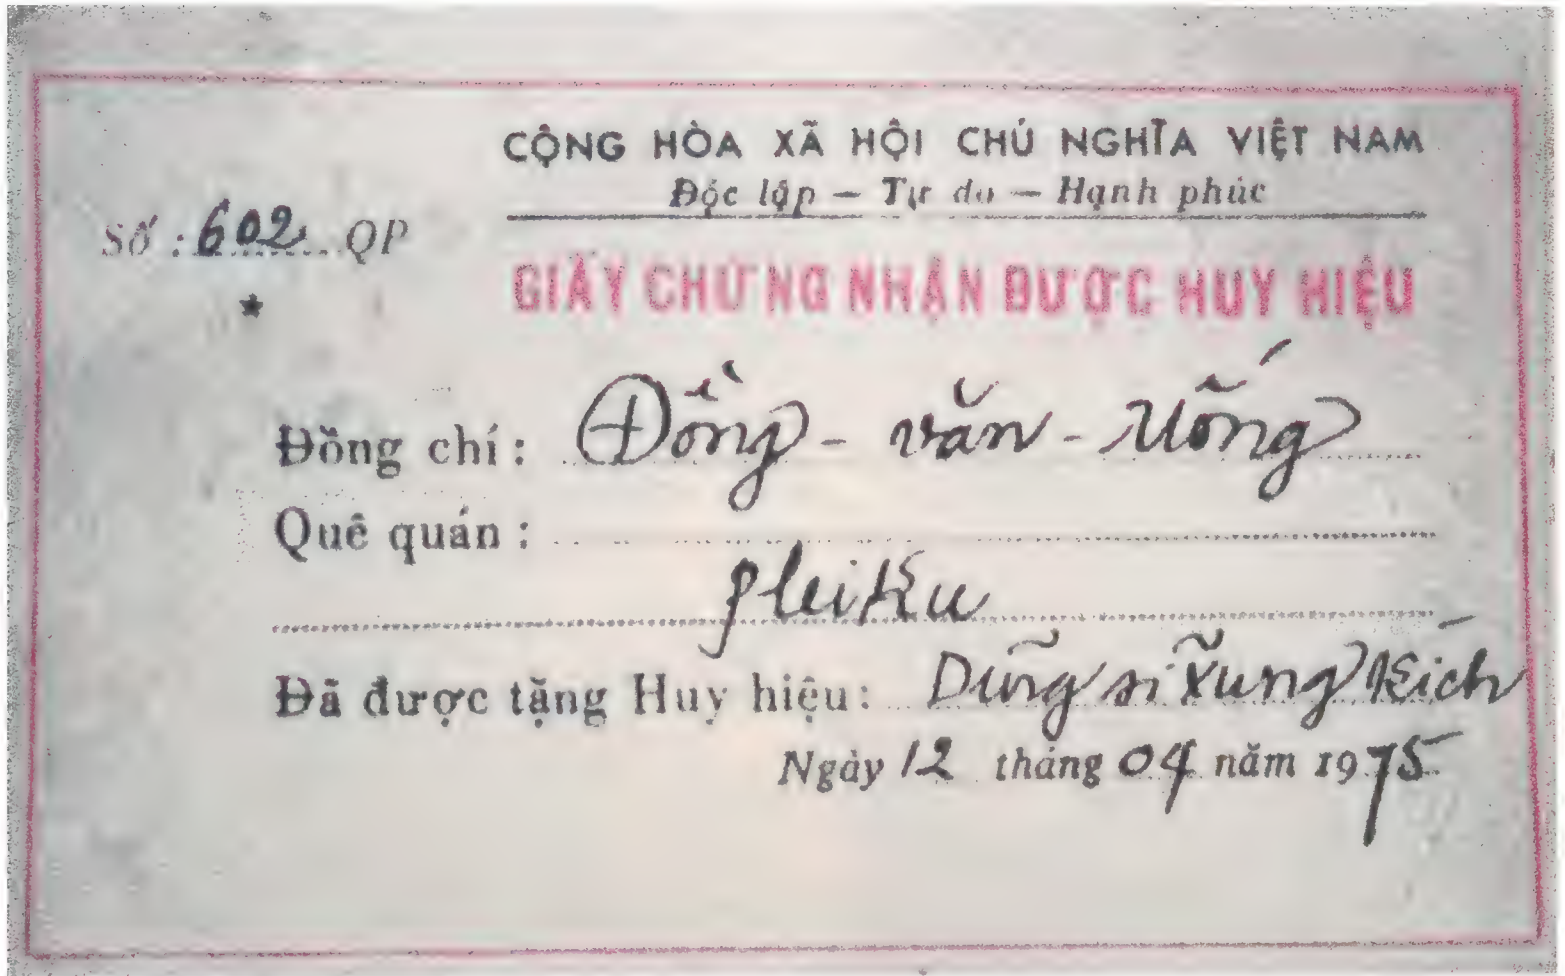 CỘNG HÒA XÃ HỘI CHỦ NGHĨA VIỆT NAM
Độc lập — Tự do — Hạnh phúc
Số : 602 QP
GIẤY CHỨNG NHẬN ĐƯỢC HUY HIỆU
Đồng chí : Đồng - văn - Uống
Quê quán :
pleiKu
Đã được tặng Huy hiệu : Dũng sĩ Xung Kích
Ngày 12 tháng 04 năm 1975